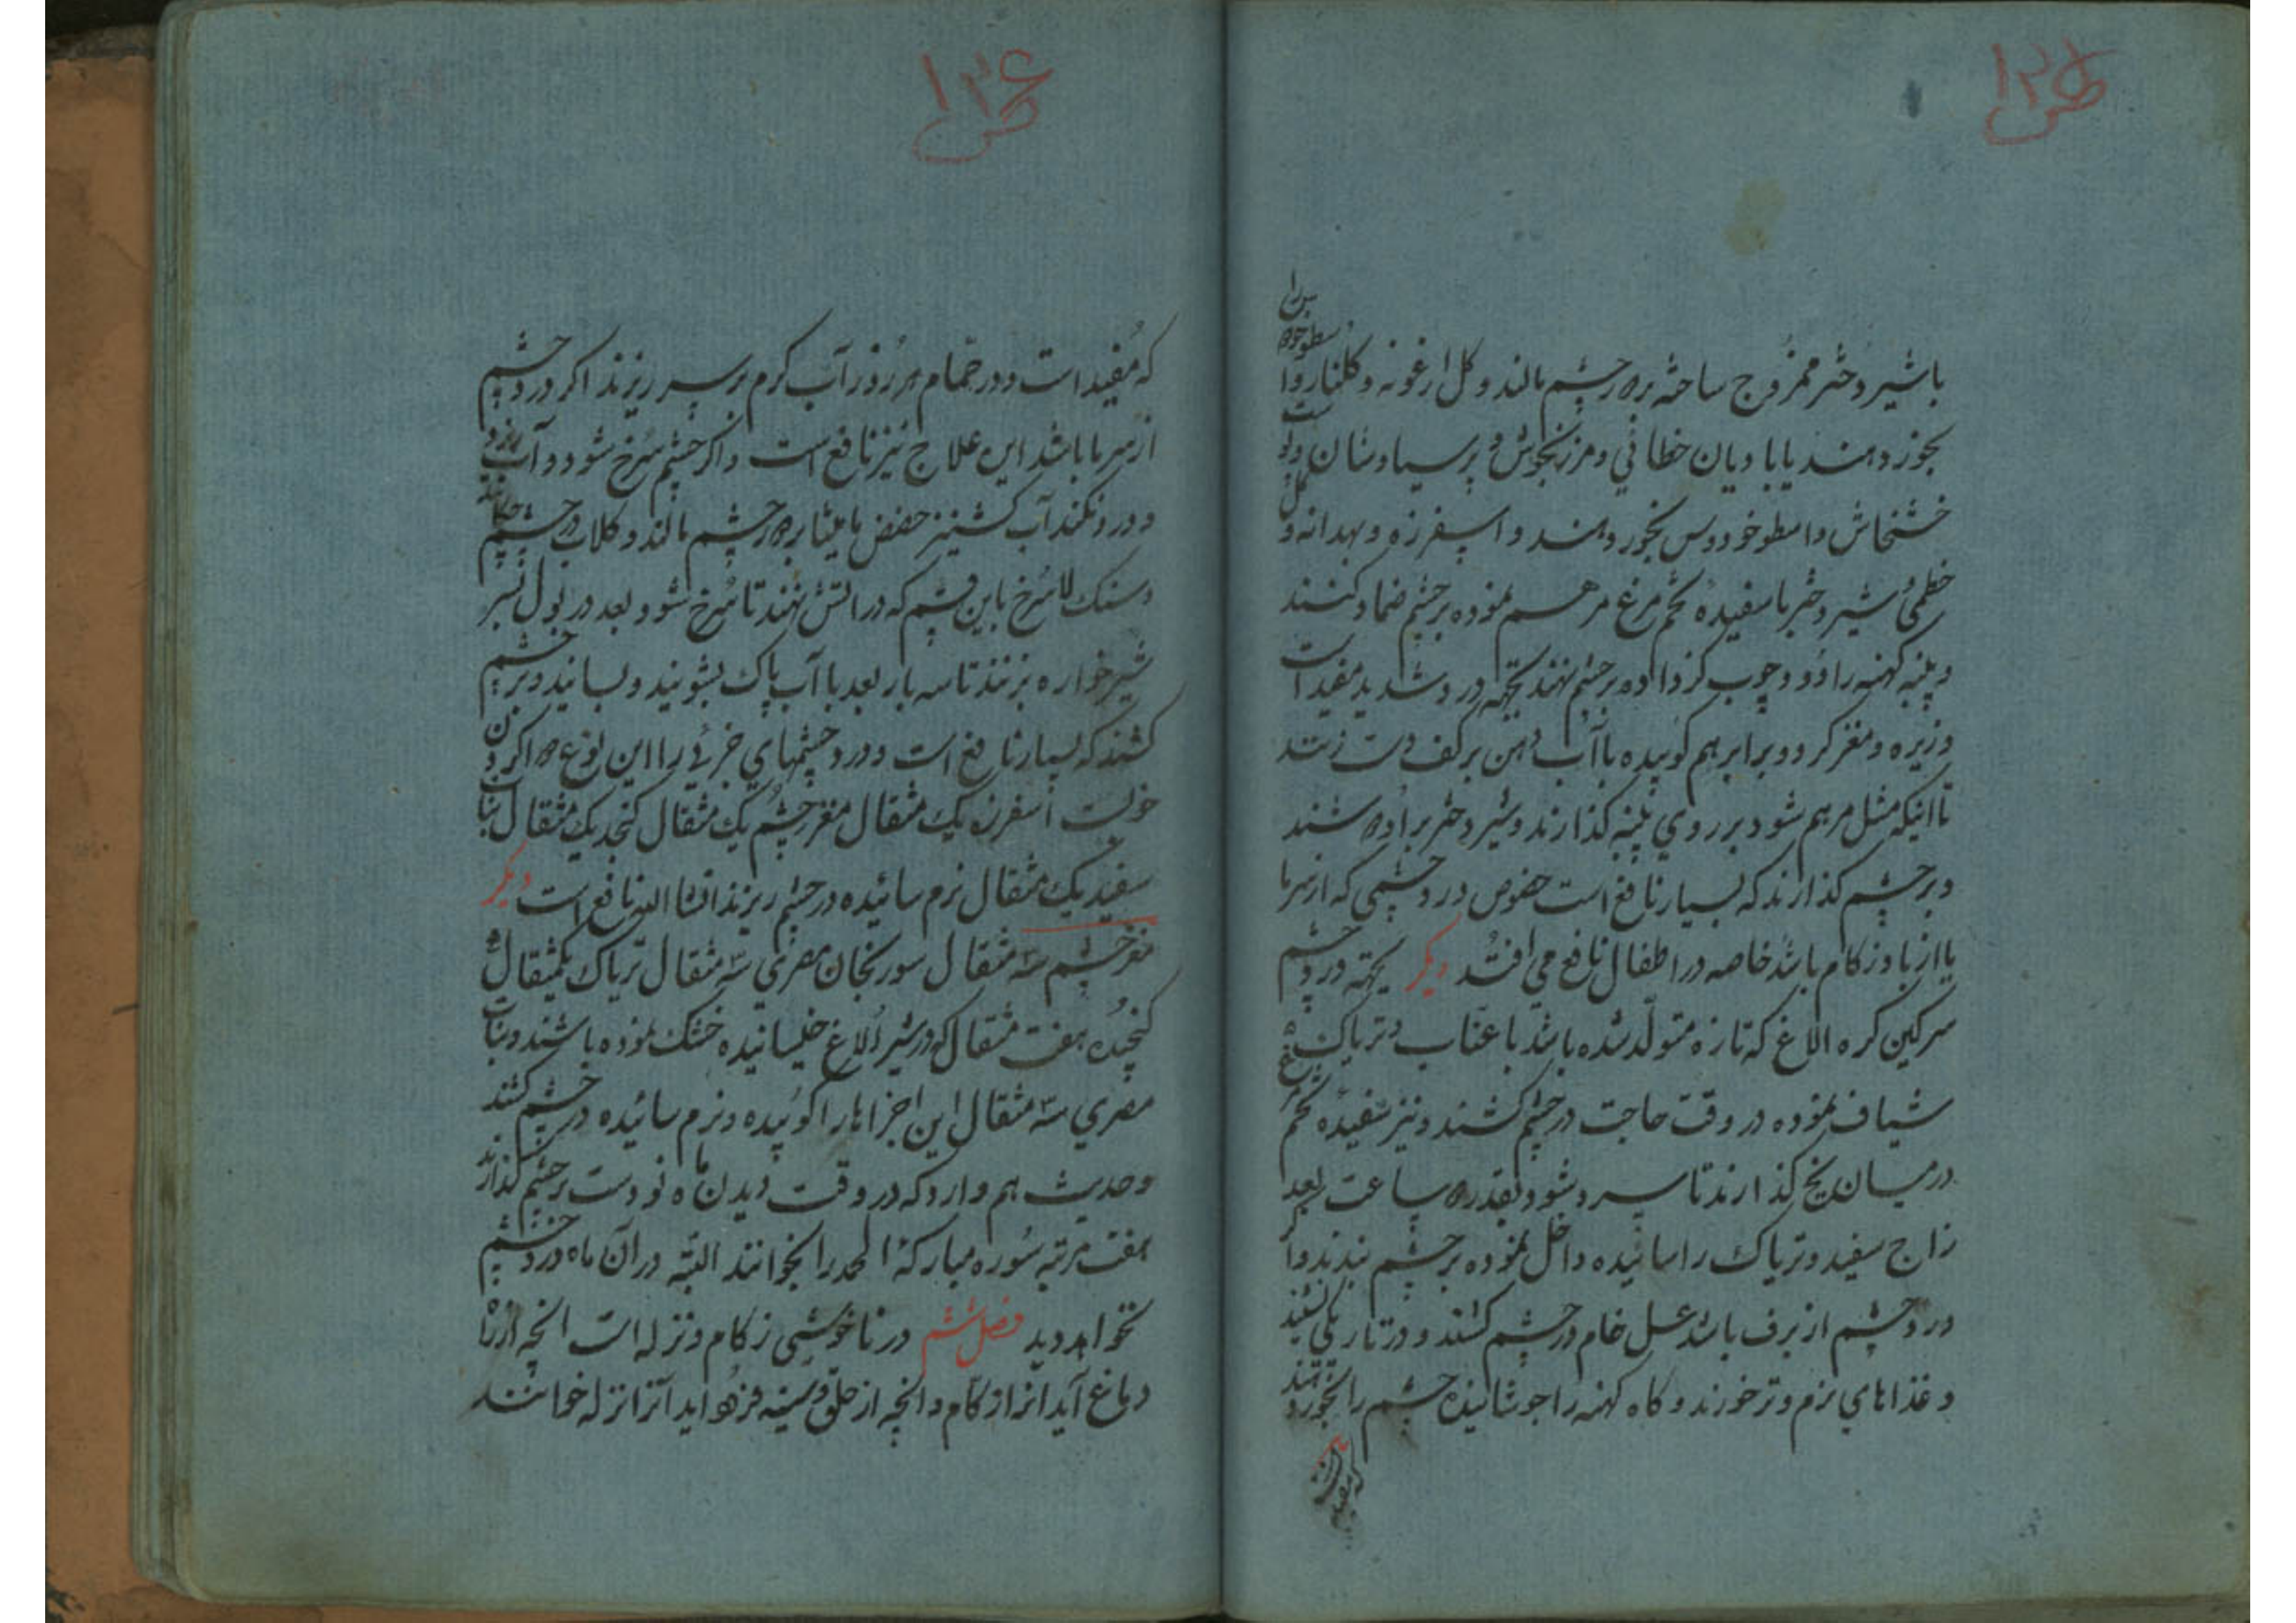 ص ۱۳۵
با شیر دختر ممزوج ساخته بر چشم مالند و کل ارغونه و کلنار را
بخورد دهند یا بادیان خطائی و مرزنجوش و پرسیاوشان
خشخاش و اسطوخودوس بخورد دهند و اسپرزه و بهدانه و
خطمی و شیر دختر با سفیده تخم مرغ مرهم نموده بر چشم ضماد کنند
و پنبه کهنه را دود چوب کز داده بر چشم نهند بجهة درد شدید مفید است
و زیره و مغز کردو برابر هم کوبیده با آب دهن بر کف دست زنند
تا اینکه مثل مرهم شود بر روی پنبه کذارند و شیر دختر بر او
و بر چشم کذارند که بسیار نافع است خصوص درد چشمی که از سرما
یا از باد و زکام باشد خاصه در اطفال نافع می افتد دیکر بجهة درد چشم
سرکین کره الاغ که تازه متولد شده باشد با عناب و تریاک
شیاف نموده در وقت حاجت در چشم کشند و نیز سفیده تخم مرغ
در میان یخ کذارند تا سرد شود بقدر ساعت بعد
زاج سفید و تریاک را سائیده داخل نموده بر چشم بندند و اکر
درد چشم از برف باشد عسل خام در چشم کشند و در تاریکی نشیند
و غذاهای نرم و تر خورند و کاه کهنه را جوشانیده چشم را بخور دهند
که مفید است
ص ۱۳۶
که مفید است و در حمام هر روز آب کرم بر سر ریزند اکر درد چشم
از سرما باشد این علاج نیز نافع است و اکر چشم سرخ شود و آب
و درد نکند آب کشنیز حضض مامیثا بر چشم مالند و کلاب در چشم چکانند
و سنک لا سرخ باین قسم که در اتش نهند تا سرخ شود بعد در بول پسر
شیرخواره زنند تا سه بار بعد با آب پاک بشویند و بسایند و بر چشم
کشند که بسیار نافع است و درد چشمهای جزئی را این نوع اکر
خوبست اسفرزه یک مثقال مغز چشم یک مثقال کنجد یک مثقال نبات
سفید یک مثقال نرم سائیده در چشم ریزند انشا الله نافع است دیکر
مغز چشم سه مثقال سورنجان مصری سه مثقال تریاک یکمثقال
کنجیده هفت مثقال که در شیر الاغ خیسانیده خشک نموده باشند و نبات
مصری سه مثقال این اجزاها را کوبیده و نرم سائیده در چشم کشند
و حدیث هم وارد که در وقت دیدن ماه نو دست بر چشم کذارند
هفت مرتبه سوره مبارکه الحمد را بخوانند البته در آن ماه درد چشم
نخواهد دید فصل ششم در ناخوشی زکام و نزله است انچه از راه
دماغ آید انرا زکام و انچه از حلق و سینه فرود اید آنرا نزله خوانند